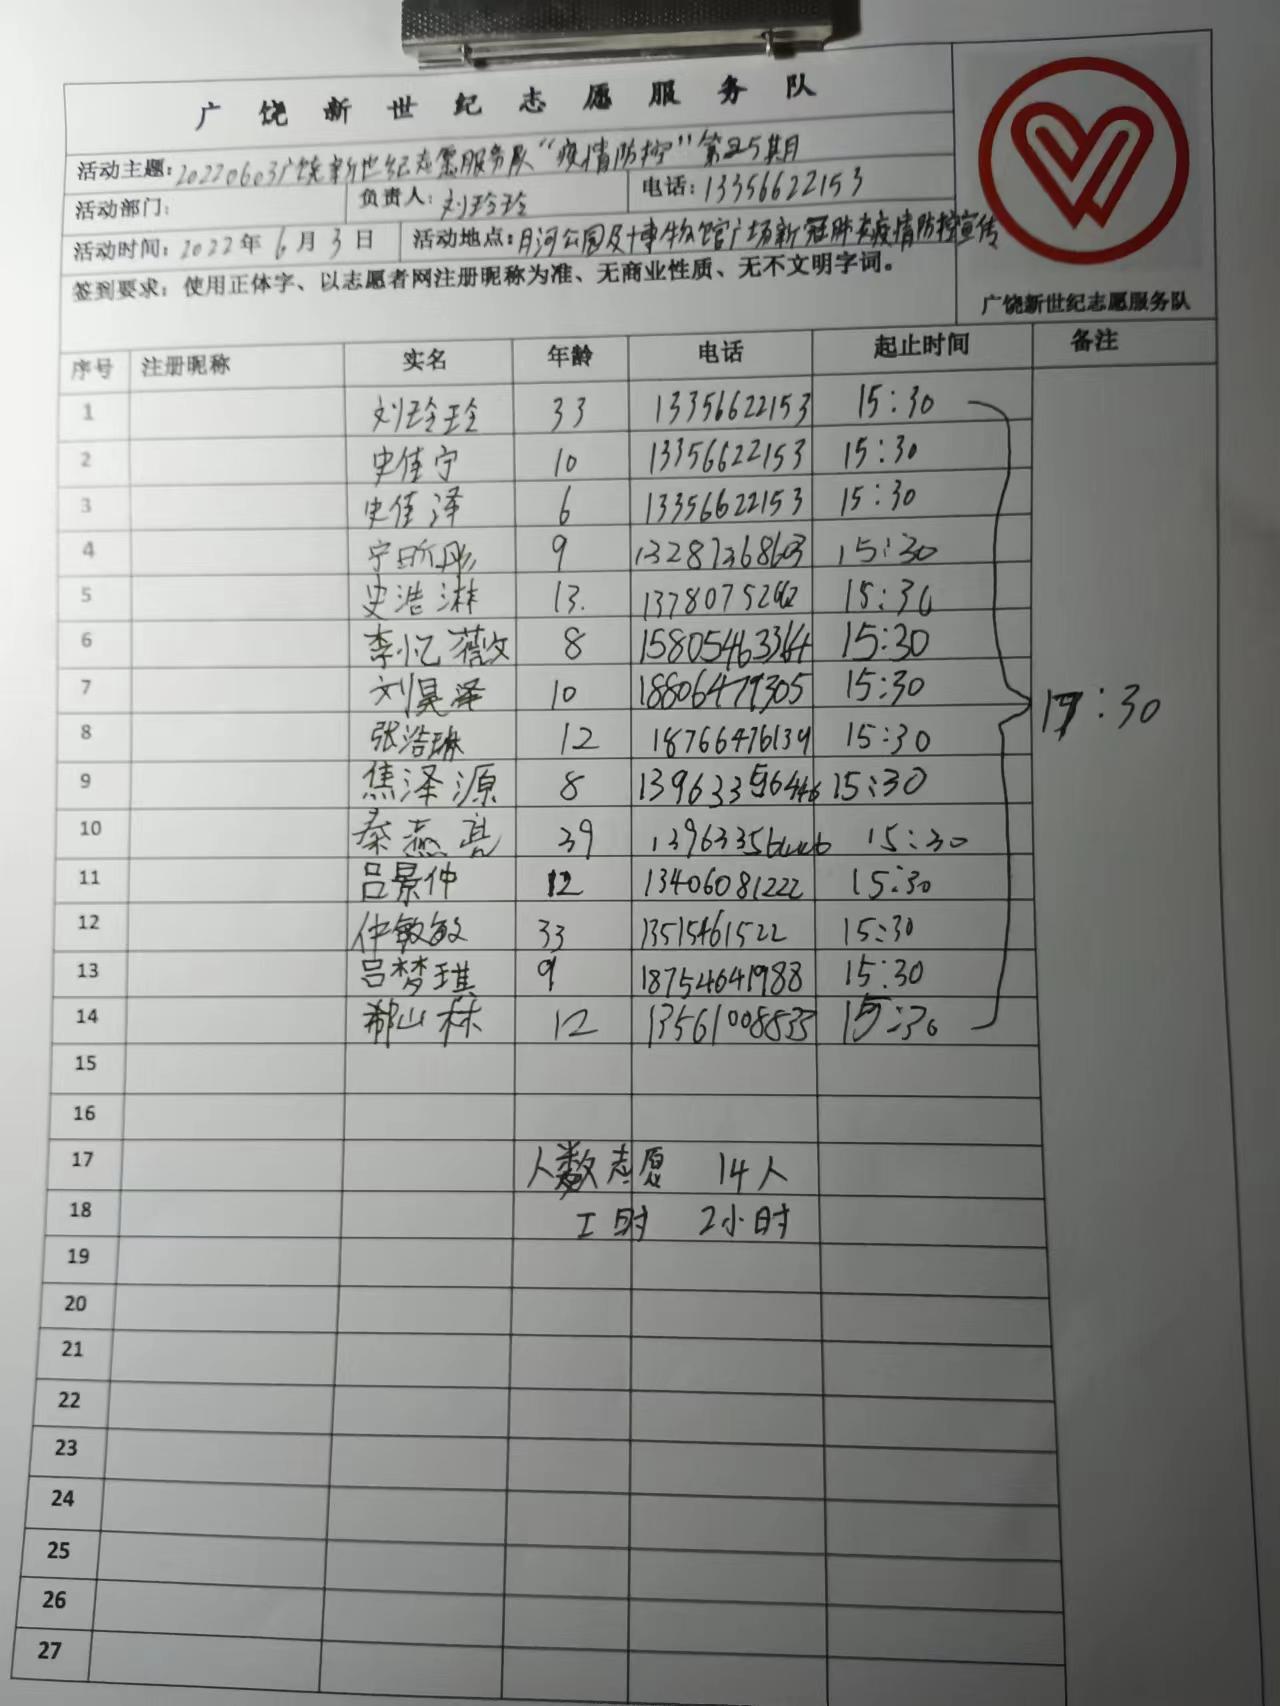 广饶新世纪志愿服务队
活动主题：20220603广饶新世纪志愿服务队“疫情防控”第25期
活动部门： 负责人：刘玲玲 电话：13356622153
活动时间：2022年6月3日 活动地点：月河公园及博物馆广场新冠肺炎疫情防控宣传
签到要求：使用正体字、以志愿者网注册昵称为准、无商业性质、无不文明字词。
广饶新世纪志愿服务队
序号 注册昵称 实名 年龄 电话 起止时间 备注
1 刘玲玲 33 13356622153 15:30
2 史佳宁 10 13356622153 15:30
3 史佳泽 6 13356622153 15:30
4 宁昕彤 9 13287368603 15:30
5 史浩淋 13. 15:30
6 李忆薇 8 15805463364 15:30
7 刘昊泽 10 18806479305 15:30
17:30
8 张浩琳 12 18766476139 15:30
9 焦泽源 8 15:30
10 秦燕亮 39 15:30
11 吕景仲 12 13406081222 15:30
12 仲敏敏 33 13515461522 15:30
13 吕梦琪 9 18754641988 15:30
14 山林 12 13561008833 15:30
15
16
17 人数志愿 14人
18 工时 2小时
19
20
21
22
23
24
25
26
27